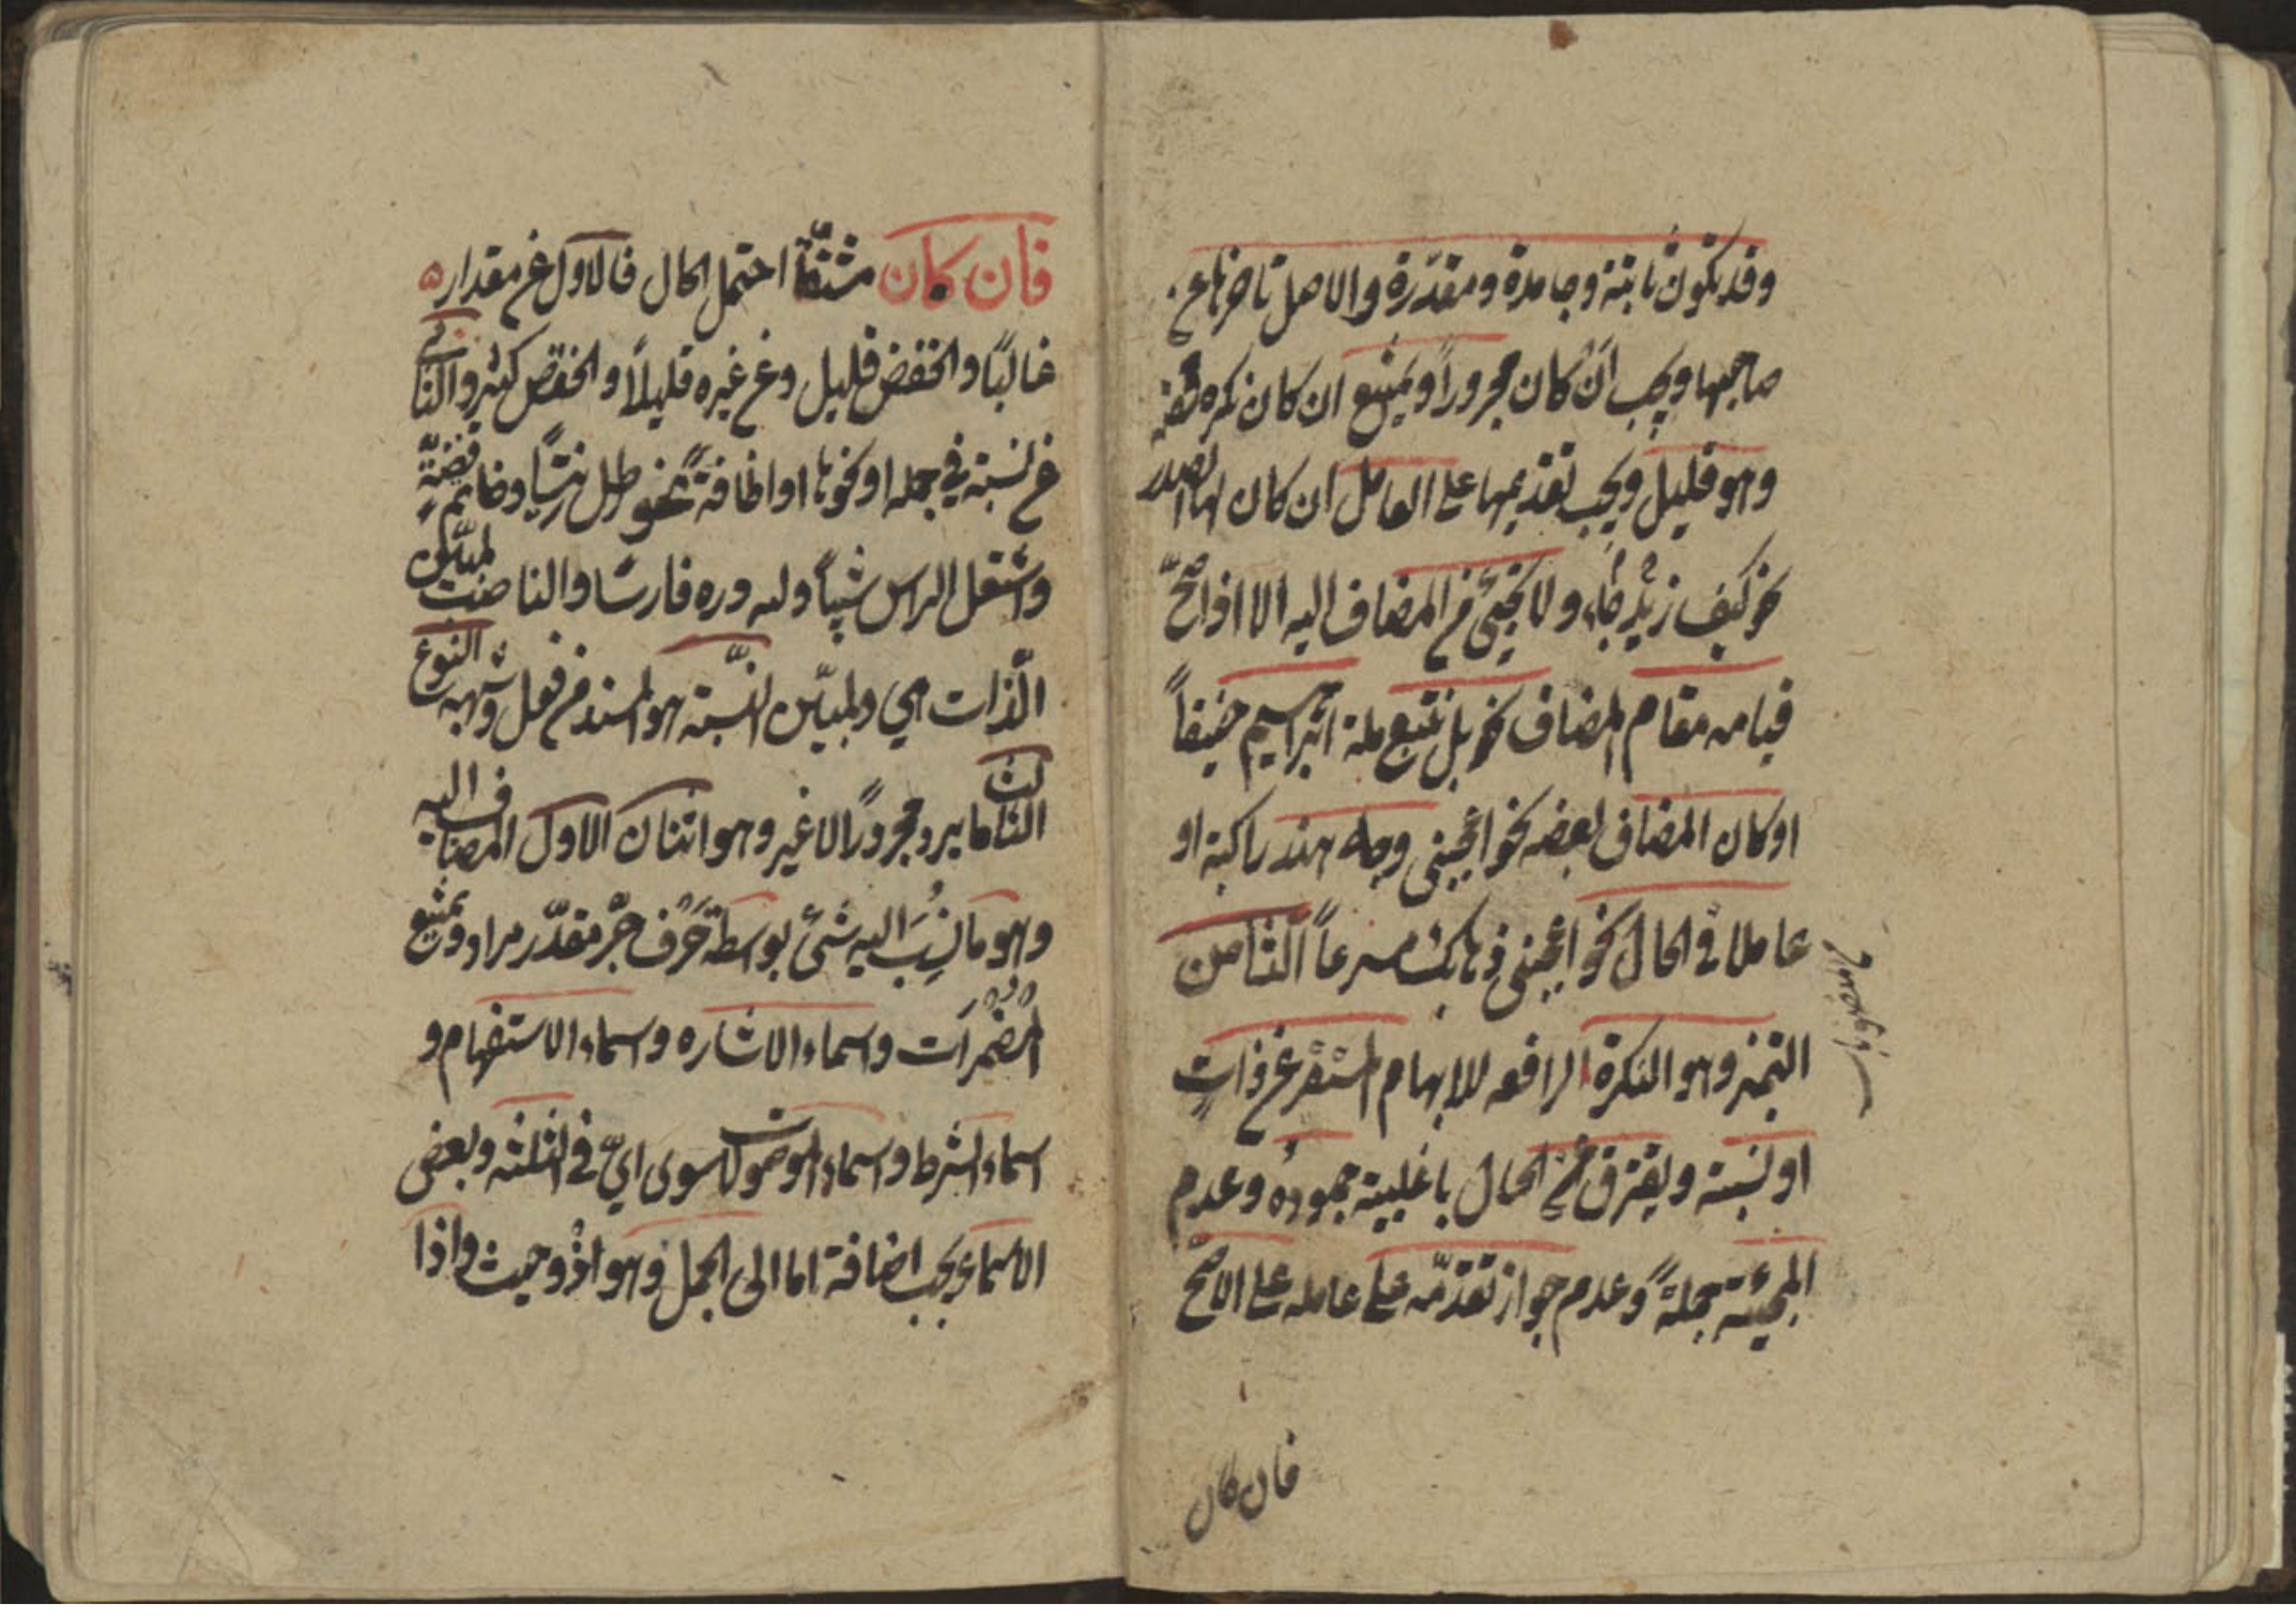 وقد تكون ثابتة وجامدة ومقدّرة والاصل تاخرها عن
صاحبها ويجب ان كان مجروراً ويمتنع ان كان نكرة محضة
وهو قليل ويجب تقديمها على العامل ان كان لها الصدر
نحو كيف زيد جاء ولا تجيئ من المضاف اليه الا اذا صحّ
قيامه مقام المضاف نحو بل نتبع ملة ابراهيم حنيفاً
او كان المضاف بعضه نحو اعجبنى وجه هند راكبة او
عاملا فى الحال نحو اعجبنى ذهابك مسرعاً الثامن
التميز وهو النكرة الرافعه للابهام المستقر عن ذات
او نسبته ويفترق عن الحال باغلبية جموده وعدم
المجيئة جملةً وعدم جواز تقدّمه على عامله على الاصح
فان كان
فان كان مشتقاً احتمل الحال فالاول عن مقدار
غالبًا والخفض قليل وعن غيره قليلاً والخفض كثير والثانى
عن نسبته في جمله او نحوها او اضافة نحو رطل زيتًا وخاتم فضةً
واشتعل الراس شيباً ولله دره فارسًا والناصب لمبيّن
الذّات هي ولمبيّن النّسبته هو المسند من فعل وشبهه النوع
الثالث ما يرد مجرورًا لا غير وهو اثنان الاول المضاف اليه
وهو ما نُسِبَ اليه شئ بوسطة حَرف جرّ مقدّر مراد ويمتنع
المُضمَرَات واسماء الاشاره واسماء الاستفهام و
اسماء الشرط واسماء الموصولات سوى ايّ فى الثلثه وبعض
الاسماء يجب اضافة اما الى الجمل وهو اذ وحيث واذا